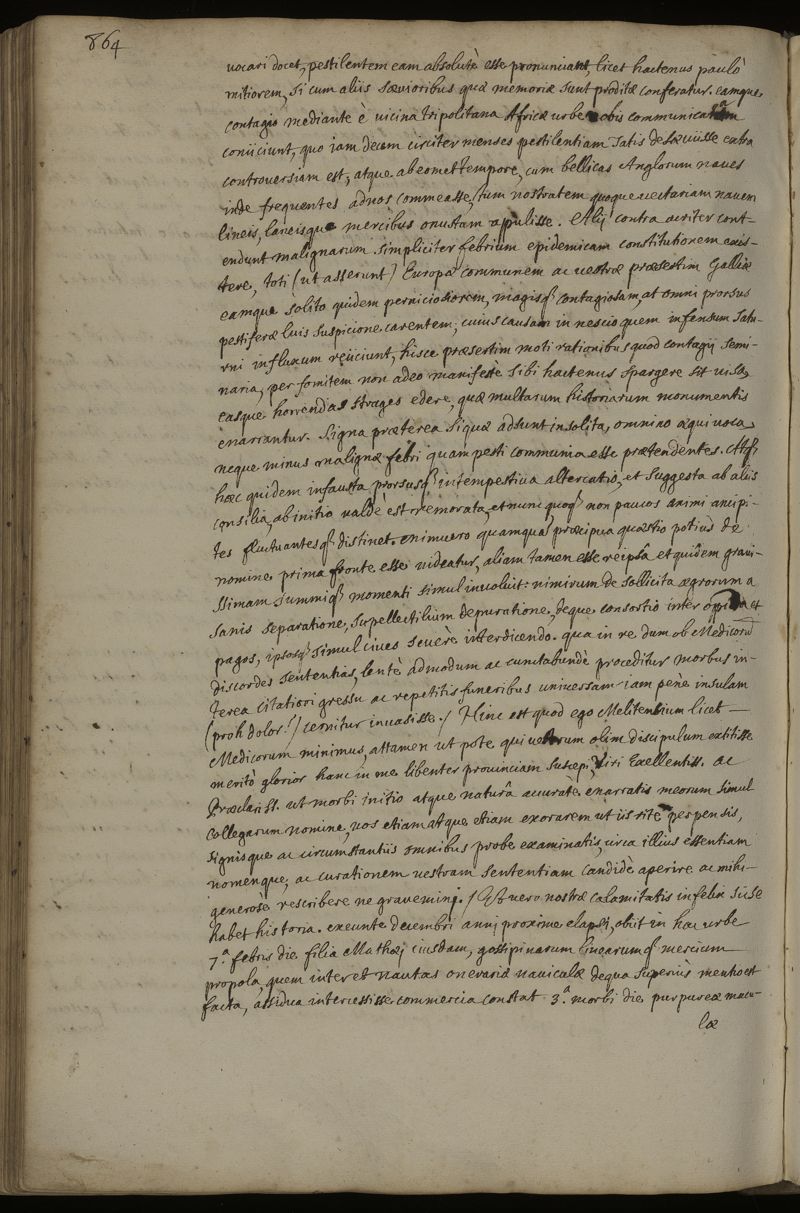 864
vocari docet, pestilentem eam absolutè esse pronunciant, licet hactenus paulò
mitiorem, si cum aliis sævioribus quæ memoriæ sunt proditæ conferatur. eamque,
contagio mediante è vicina tripolitana Africæ urbe nobis communicatam
coniiciunt, quo iam decem circiter menses pestilentiam satis desævisse extra
controversiam est, atque ab eomet tempore, cum bellicas Anglorum naves
inde frequentes ad nos commeasse, tum nostratem quoque vectariam navem
lineis, laneisque mercibus onustam apulisse. Alij contra acriter cont-
endunt malignarum simpliciter febrium epidemicam constitutionem exis-
tere, toti (ut asserunt) Europæ communem ac vestræ præsertim Galliæ
eamque solito quidem perniciosiorem, magisq; contagiosam, at omni prorsus
pestiferæ luis suspicione carentem; cuius causam in nescio quem infensum Satu-
rni influxum reiiciunt, hisce præsertim moti rationibus quod contagij semi-
naria, per fomitem non adeo manifestè sibi hactenus spargere sit visa,
easque horrendas strages edere, quæ multarum historiarum monumentis
enarrantur. Signa præterea siquæ adsunt insolita, omnino æquivoca,
neque minus malignæ febri quam pesti communia esse prætendentes. Atq;
hæc quidem infausta prorsusq; intempestiva altercatio, et suggesta ab aliis
consilia, ab initio valdè est remorata, et nunc quoq; non paucos animi ancipi-
tes fluctuantesq; distinet. enimvero quamquã præcipua quæstio potiùs de
nomine prima fronte esse videatur, aliam tamen esse reipsâ et quidem gravi-
ssimam summiq; momenti simul involvit: nimirum de sollicita ægrorum a
sanis separatione, supellectilium depuratione, deque consortio inter oppida et
pagos, ipsosq; simul cives severè interdicendo. qua in re dum ob Medicorũ
discordes sententias, lentè admodum ac cunctabundè proceditur morbus in-
terea citatiori gressu ac repetitis funeribus universam iam penè insulam
(proh dolor!) cernitur invasisse./ Hinc est quod ego Melitensium licet
Medicorum minimus, attamen ut pote qui vestrum olim discipulum extitisse
meritò glorior hanc in me libenter provinciam suscepi, Viri Excellentiss. ac
Præclariss. ut morbi initio atque naturâ accuratè enarratis meorum simul
Collegarum nomine, vos etiam atque etiam exorarem ut iis ritè perpensis,
signisque ac circumstantiis omnibus probe examinatis, circa illius essentiam
nomenque, ac curationem vestram sententiam candidè aperire ac mihi
generosè rescribere ne gravemini. / Et vero nostræ calamitatis infelix sic se
habet historia. exeunte decembri anni proxime elapsi, obiit in hac urbe
7.ª febris die filia Mathæi cuiusdam, gossipinarum linearumq; mercium
propola, quem inter et nautas onerariæ naviculæ de qua superius mentio est
facta, assidua intercessisse commercia constat. 3.ª morbi die purpureæ macu-
læ